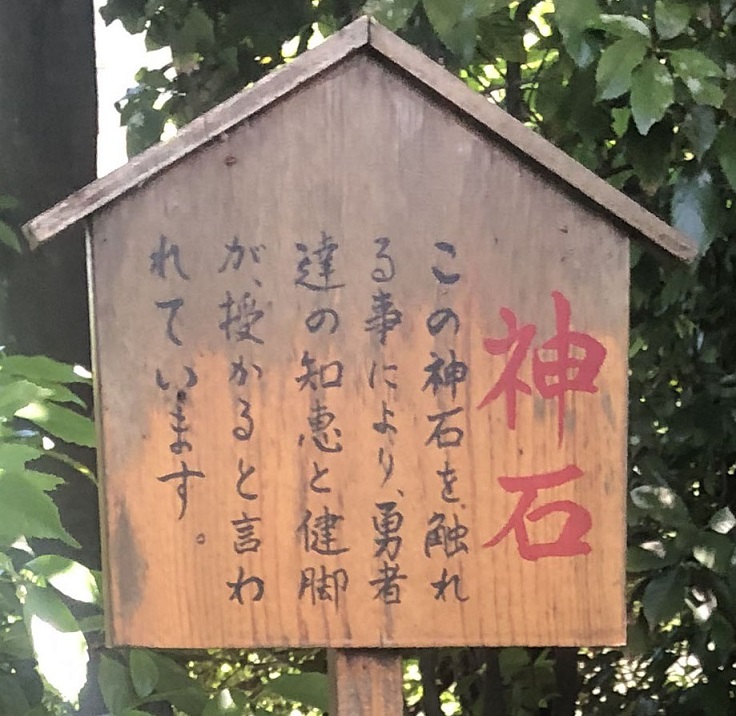 神石
この神石を触れ
る事により、勇者
達の知恵と健脚
が、授かると言わ
れています。